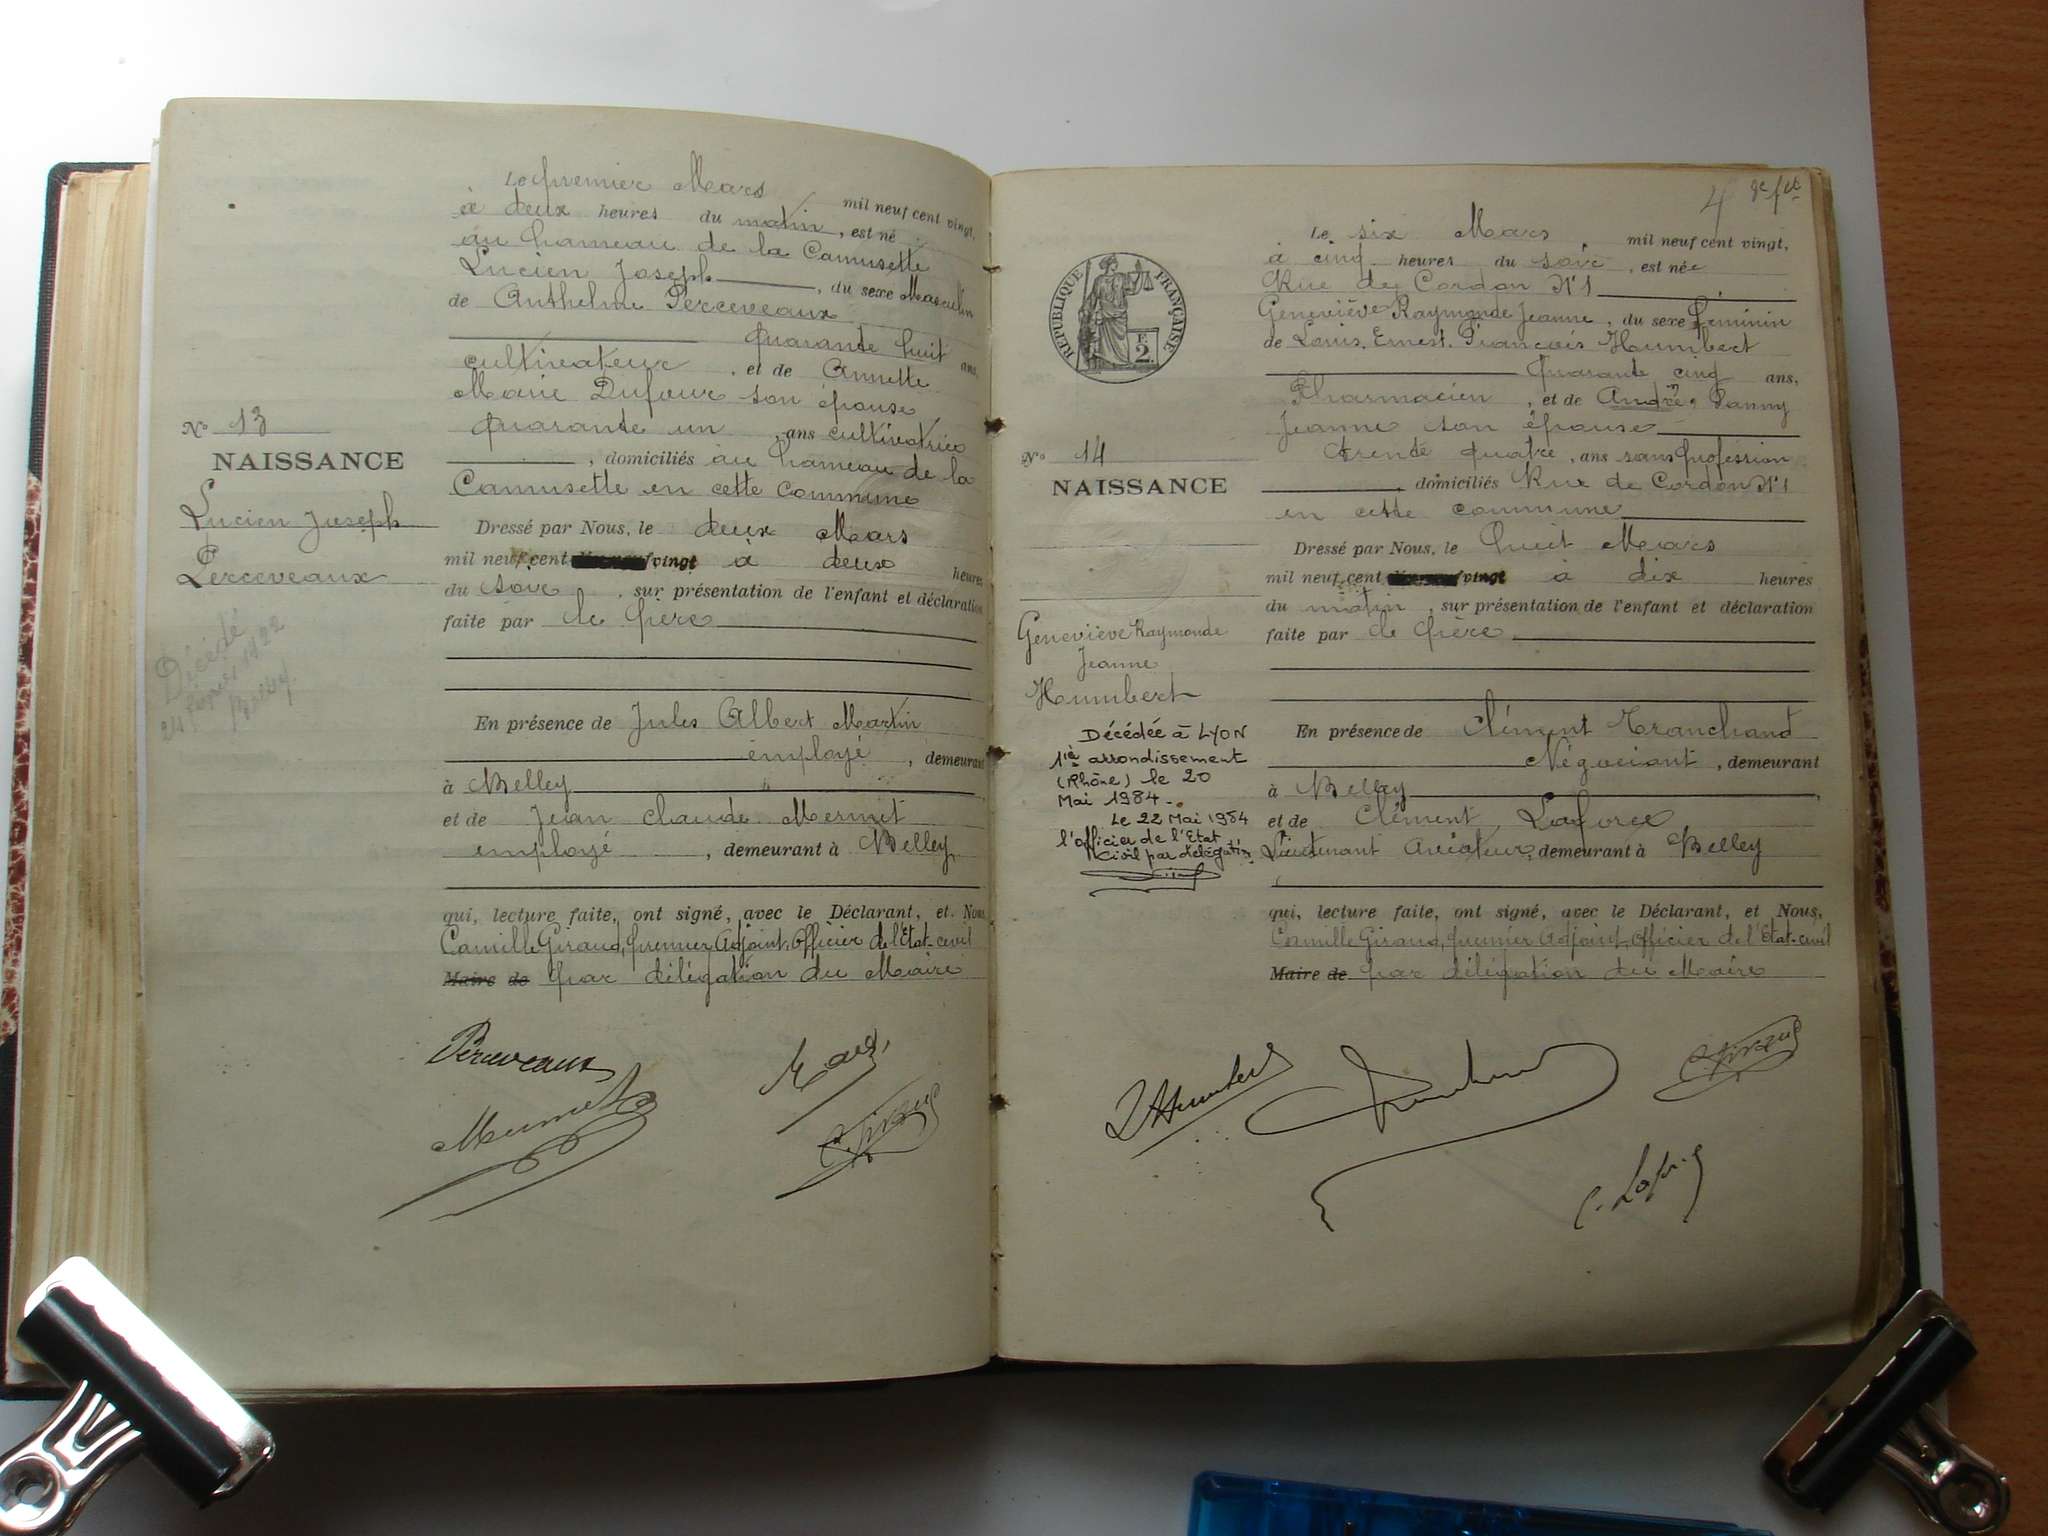 Le premier Mars mil neuf cent vingt,
à deux heures du matin, est né
au hameau de la Camusette
Lucien Joseph, du sexe Masculin
de Anthelme Perceveaux
Quarante huit ans,
cultivateur, et de Annette
Marie Dufour son épouse
Quarante un, ans cultivatrice
, domiciliés au hameau de la
Camusette en cette commune
No 13
NAISSANCE
Lucien Joseph
Perceveaux
Décédé
24 février 1922
Belley
Dressé par Nous, le deux Mars
mil neuf cent vingt à deux heures
du soir, sur présentation de l'enfant et déclaration
faite par le père
En présence de Jules Albert Martin
employé, demeurant
à Belley
et de Jean Claude Mermet
employé, demeurant à Belley
qui, lecture faite, ont signé, avec le Déclarant, et Nous
Camille Giraud, premier Adjoint, Officier de l'Etat-civil
Maire de par délégation du Maire
Perceveaux
Mermet
C. Giraud
4
RÉPUBLIQUE FRANÇAISE
F.
2.
Le six Mars, mil neuf cent vingt,
à cinq heures du soir, est née
Rue de Cordon N°1
Geneviève Raymonde Jeanne, du sexe féminin
de Louis, Ernest, François Humbert
Quarante cinq ans,
Pharmacien, et de André, Fanny
Jeanne son épouse
trente quatre, ans sans profession
, domiciliés Rue de Cordon N°1
en cette commune
No 14
NAISSANCE
Geneviève Raymonde
Jeanne
Humbert
Décédée à LYON
1iè arrondissement
(Rhône) le 20
Mai 1984.
Le 22 Mai 1984
l'officier de l'Etat
Civil par délégation
Dressé par Nous, le huit Mars
mil neuf cent vingt à dix heures
du matin, sur présentation de l'enfant et déclaration
faite par le père
En présence de Clément Tranchand
Négociant, demeurant
à Belley
et de Clément Laforce
Lieutenant Aviateur, demeurant à Belley
qui, lecture faite, ont signé, avec le Déclarant, et Nous,
Camille Giraud, premier Adjoint, Officier de l'Etat-civil
Maire de par délégation du Maire
L Humbert
C. Giraud